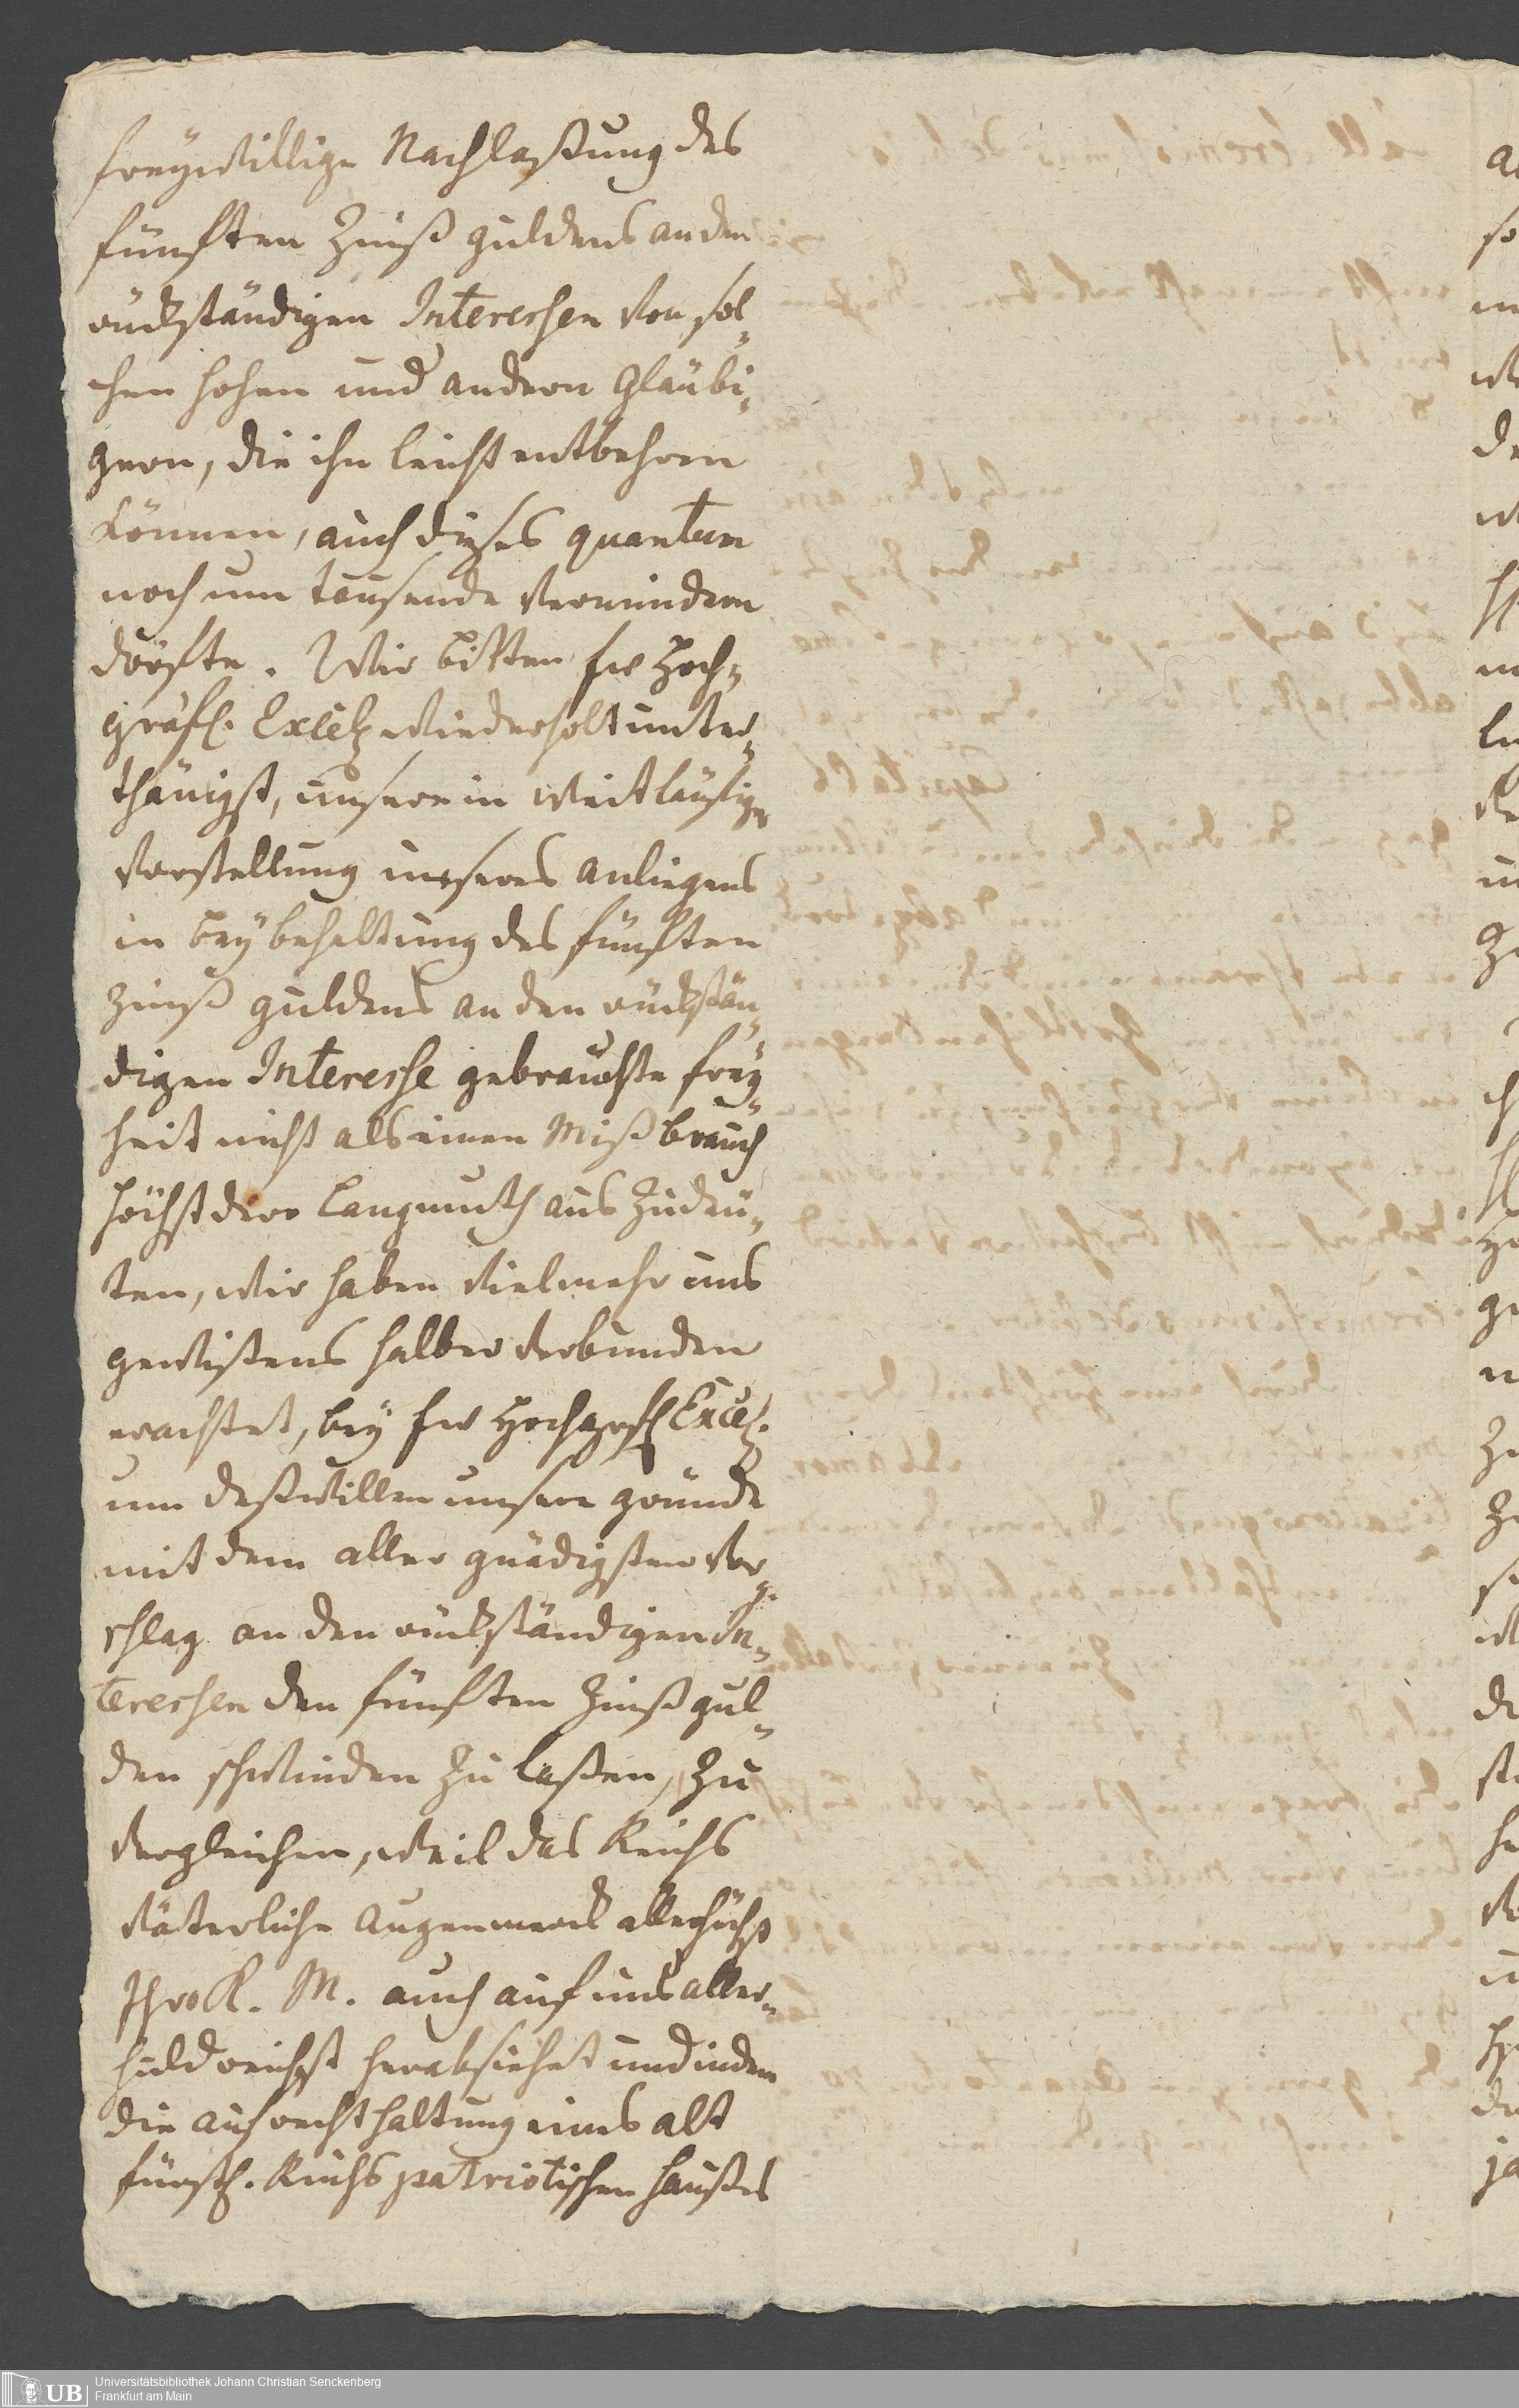 freÿwillige Nachlaßung des
fünften Zinß guldens an den
rückständigen Interessen von sol„
chen hohen und andern Gläubi„
gern, die ihn leicht entbehren
können, auch dieses quantum
noch um tausende vermindern
dörfte. Wir bitten Ew Hoch„
gräfl. Excellz wiederholt unter„
thänigst, unsere in weitläufiger
Vorstellung unseres anliegens
in beÿbehaltung des fünften
Zinß guldens an den rückstän„
digen Interesse gebrauchte freÿ„
heit nicht als einen Mißbrauch
höchst dero Langmuth aus zudeu„
ten, wir haben vielmehr uns
gewißens halber verbunden
erachtet, beÿ Ew Hochgräfl Excelz.
um deßwillen unsere gründe
mit dem aller gnädigsten Vor„
schlag an den rückständigen In„
teressen den fünften Zinß gul„
den schwinden zu laßen, zu
vergleichen, weil das Reichs
väterliche Augenmerck allerhöchst
Ihro K. M. auch auf uns aller„
huldreichst herabsiehet und in dem
die aufrechthaltung eines alt
fürstl. Reichs patriotischen Haußes
Universitätsbibliothek Johann Christian Senckenberg
Frankfurt am Main
UB